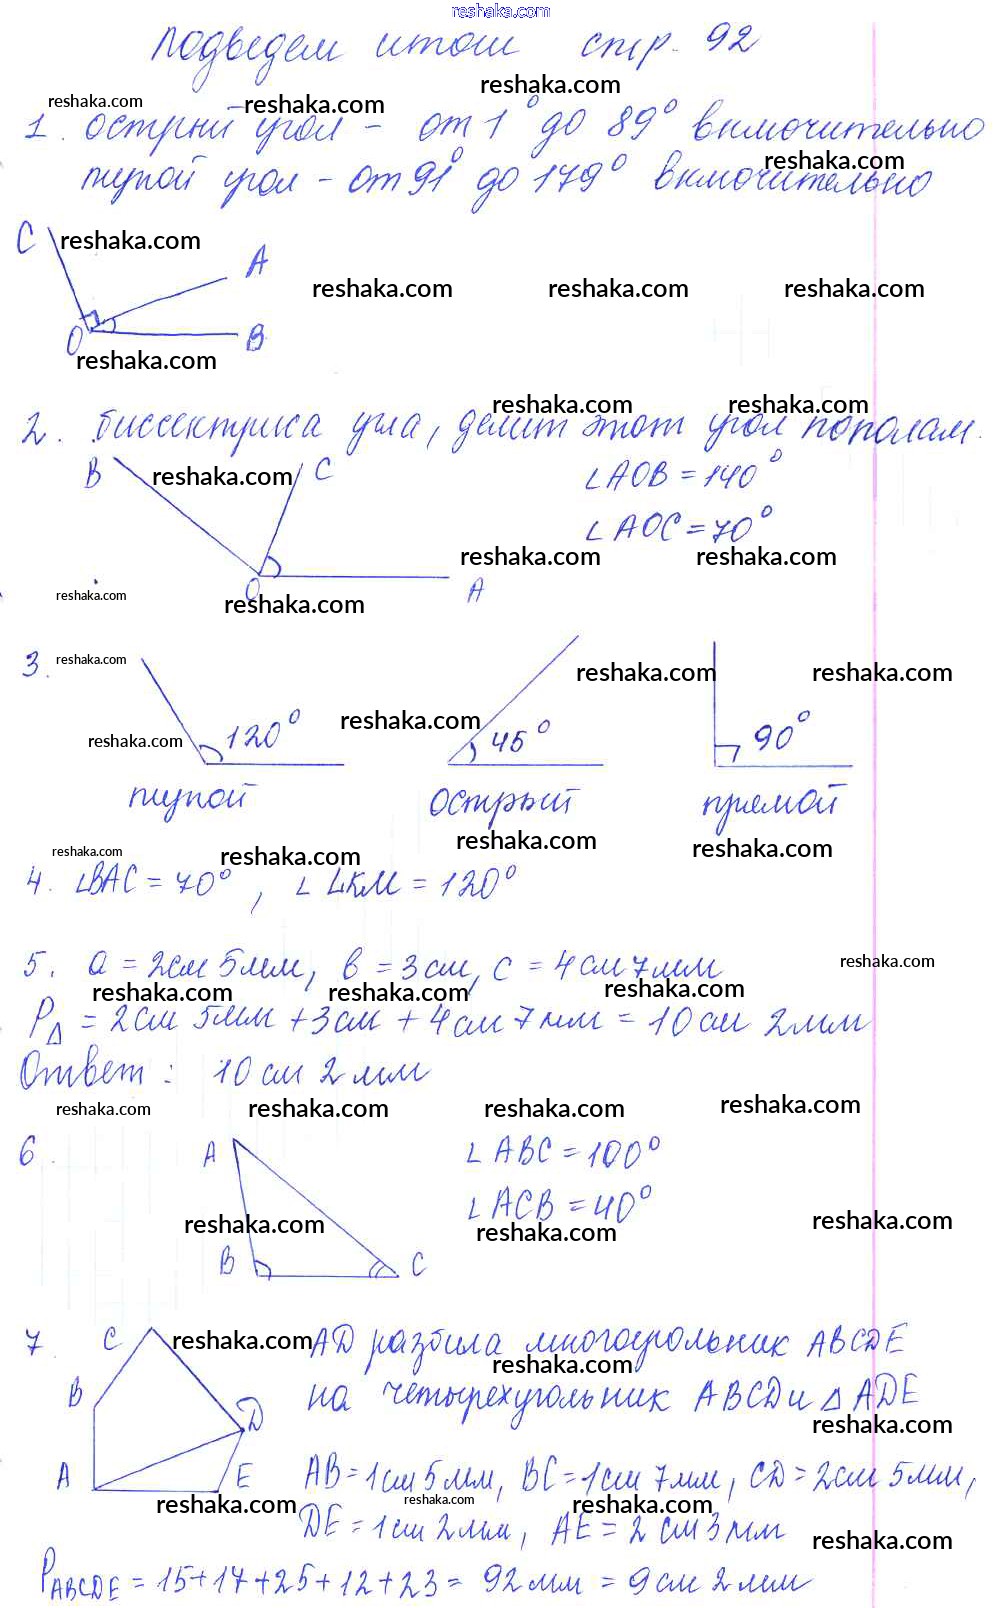 reshaka.com
Подведем итоги стр. 92
reshaka.com
reshaka.com reshaka.com
1. острый угол - от 1° до 89° включительно
reshaka.com
тупой угол - от 91° до 179° включительно
C reshaka.com A
reshaka.com reshaka.com reshaka.com
O B
reshaka.com
reshaka.com reshaka.com
2. биссектриса угла, делит этот угол пополам.
B reshaka.com C ∠AOB = 140°
∠AOC = 70°
reshaka.com reshaka.com
reshaka.com O reshaka.com A
3. reshaka.com reshaka.com reshaka.com
reshaka.com 120° reshaka.com 45° 90°
тупой острый прямой
reshaka.com reshaka.com reshaka.com reshaka.com
4. ∠BAC = 70°, ∠LKM = 120°
5. a = 2см 5мм, b = 3см, c = 4см 7мм reshaka.com
reshaka.com reshaka.com reshaka.com
P△ = 2см 5мм + 3см + 4см 7мм = 10см 2мм
Ответ: 10см 2мм
reshaka.com reshaka.com reshaka.com reshaka.com
6. A ∠ABC = 100°
∠ACB = 40°
reshaka.com reshaka.com reshaka.com
B C
7. C reshaka.com AD разбила многоугольник ABCDE
reshaka.com
B на четырехугольник ABCD и △ADE
D reshaka.com
A E AB = 1см 5мм, BC = 1см 7мм, CD = 2см 5мм,
reshaka.com reshaka.com reshaka.com
DE = 1см 2мм, AE = 2см 3мм
reshaka.com
PABCDE = 15+17+25+12+23 = 92мм = 9см 2мм